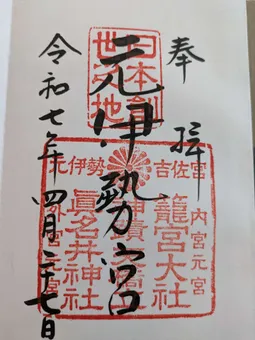 奉拝
日本創
世之地
元伊勢宮
令和七年四月二十七日
元伊勢 吉佐宮
内宮元宮
籠宮大社
眞名井神社
外宮元宮